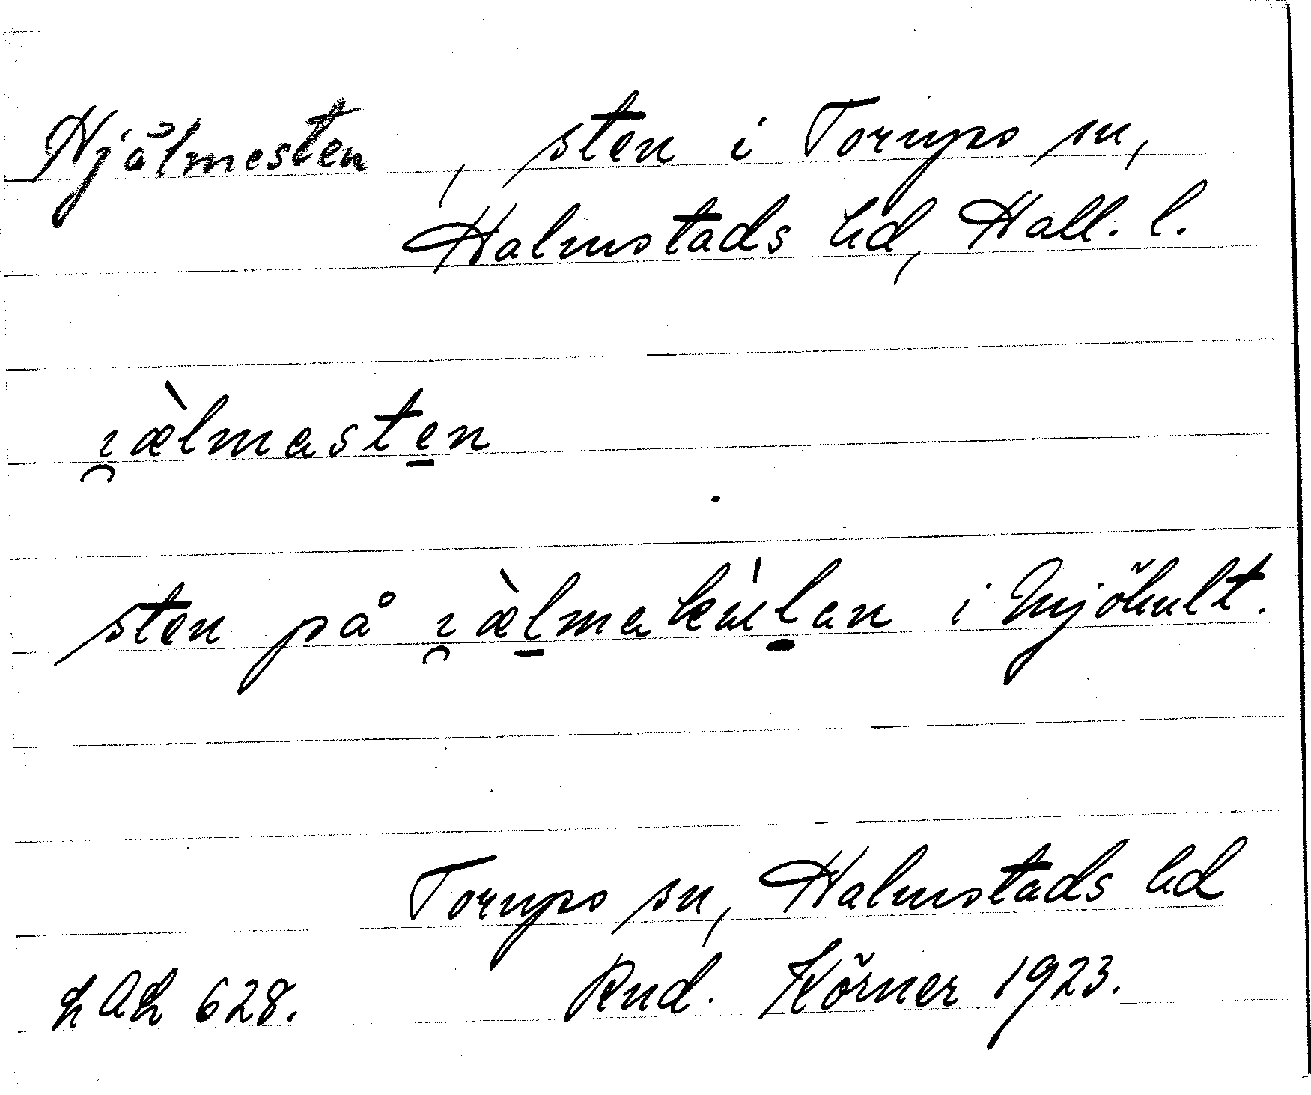 Hjälmesten, sten i Torups sn,
Halmstads hd, Hall. l.
ı̯æ̀lmaste̱n
sten på ı̯æ̀ḻmakùḻan i Mjöhult.
Torups sn, Halmstads hd
LAL 628. Rud. Körner 1923.